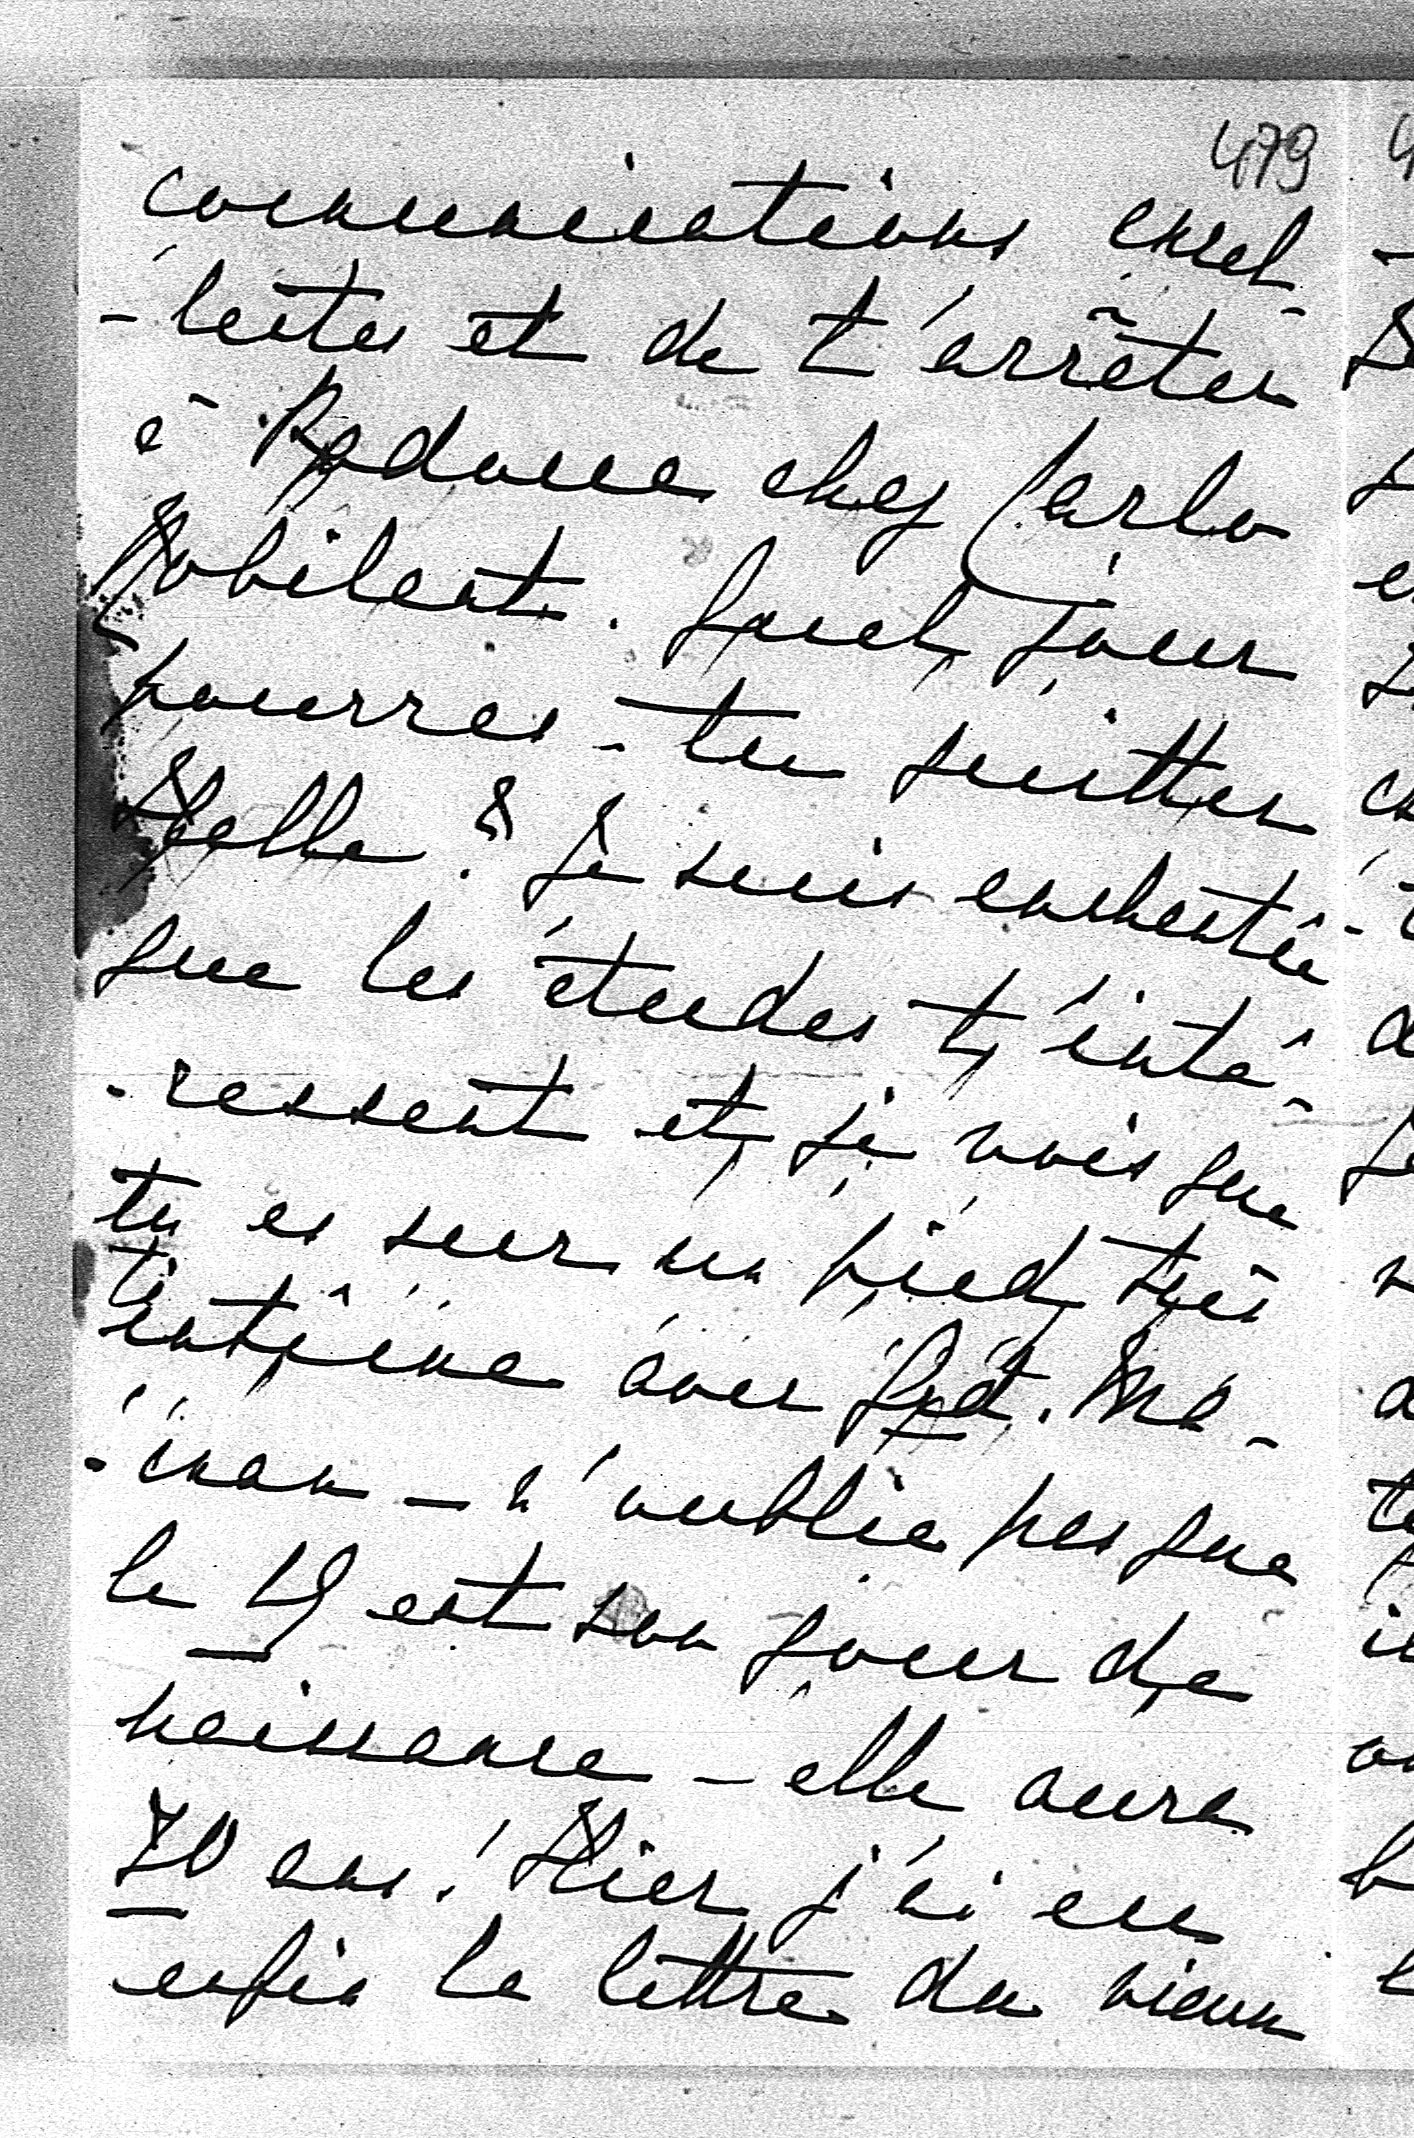 479
communications excel-
-lentes et de t'arrêter
à Padoue chez Carlo
Robilant. Quel jour
pourras-tu quitter
Halle? Je suis enchantée
que les études t'inté-
-ressent et je vois que
tu es sur un pied très
intime avec Gd. Ma-
-man – n'oublie pas que
le 19 est son jour de
naissance – elle aura
70 ans! Hier j'ai eu
enfin la lettre du vieux